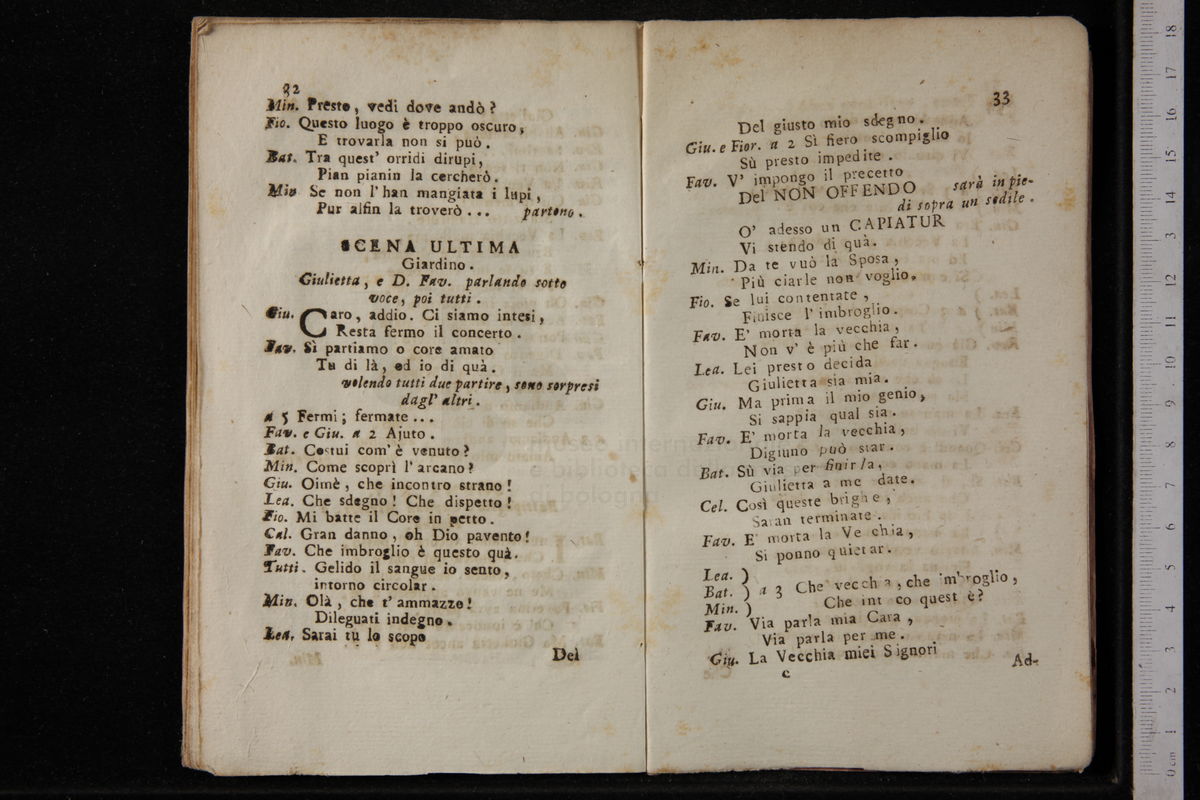 32
Min. Presto, vedi dove andò?
Fio. Questo luogo è troppo oscuro,
E trovarla non si può.
Bat. Tra quest' orridi dirupi,
Pian pianin la cercherò.
Min Se non l'han mangiata i lupi,
Pur alfin la troverò... partono.
SCENA ULTIMA
Giardino.
Giulietta, e D. Fav. parlando sotto
voce, poi tutti.
Giu. Caro, addio. Ci siamo intesi,
Resta fermo il concerto.
Fav. Sì partiamo o core amato
Tu di là, ed io di quà.
volendo tutti due partire, sono sorpresi
dagl' altri.
a 5 Fermi; fermate...
Fav. e Giu. a 2 Ajuto.
Bat. Costui com' è venuto?
Min. Come scoprì l'arcano?
Giu. Oimè, che incontro strano!
Lea. Che sdegno! Che dispetto!
Fio. Mi batte il Core in petto.
Cal. Gran danno, oh Dio pavento!
Fav. Che imbroglio è questo quà.
Tutti. Gelido il sangue io sento,
intorno circolar.
Min. Olà, che t'ammazzo!
Dileguati indegno.
Lea. Sarai tu lo scopo
Del
33
Del giusto mio sdegno.
Giu. e Fior. a 2 Sì fiero scompiglio
Sù presto impedite.
Fav. V' impongo il precetto
Del NON OFFENDO sarà in pie-
di sopra un sedile.
O' adesso un CAPIATUR
Vi stendo di quà.
Min. Da te vuò la Sposa,
Più ciarle non voglio.
Fio. Se lui contentate,
Finisce l'imbroglio.
Fav. E' morta la vecchia,
Non v' è più che far.
Lea. Lei presto decida
Giulietta sia mia.
Giu. Ma prima il mio genio,
Si sappia qual sia.
Fav. E' morta la vecchia,
Digiuno può star.
Bat. Sù via per finirla,
Giulietta a me date.
Cel. Così queste brighe,
Saran terminate.
Fav. E' morta la Ve chia,
Si ponno quietar.
Lea. )
Bat. ) a 3 Che vecch a, che im'roglio,
Min. ) Che int co quest è?
Fav. Via parla mia Cara,
Via parla per me.
Giu. La Vecchia miei Signori
C
Ad-
museo internazionale
e biblioteca della
di bologna